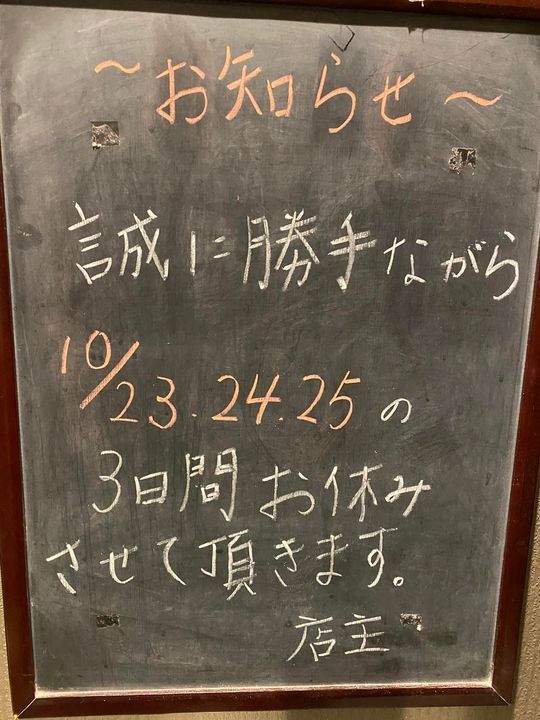 ～お知らせ～
誠に勝手ながら
10/23.24.25の
3日間お休み
させて頂きます。
店主